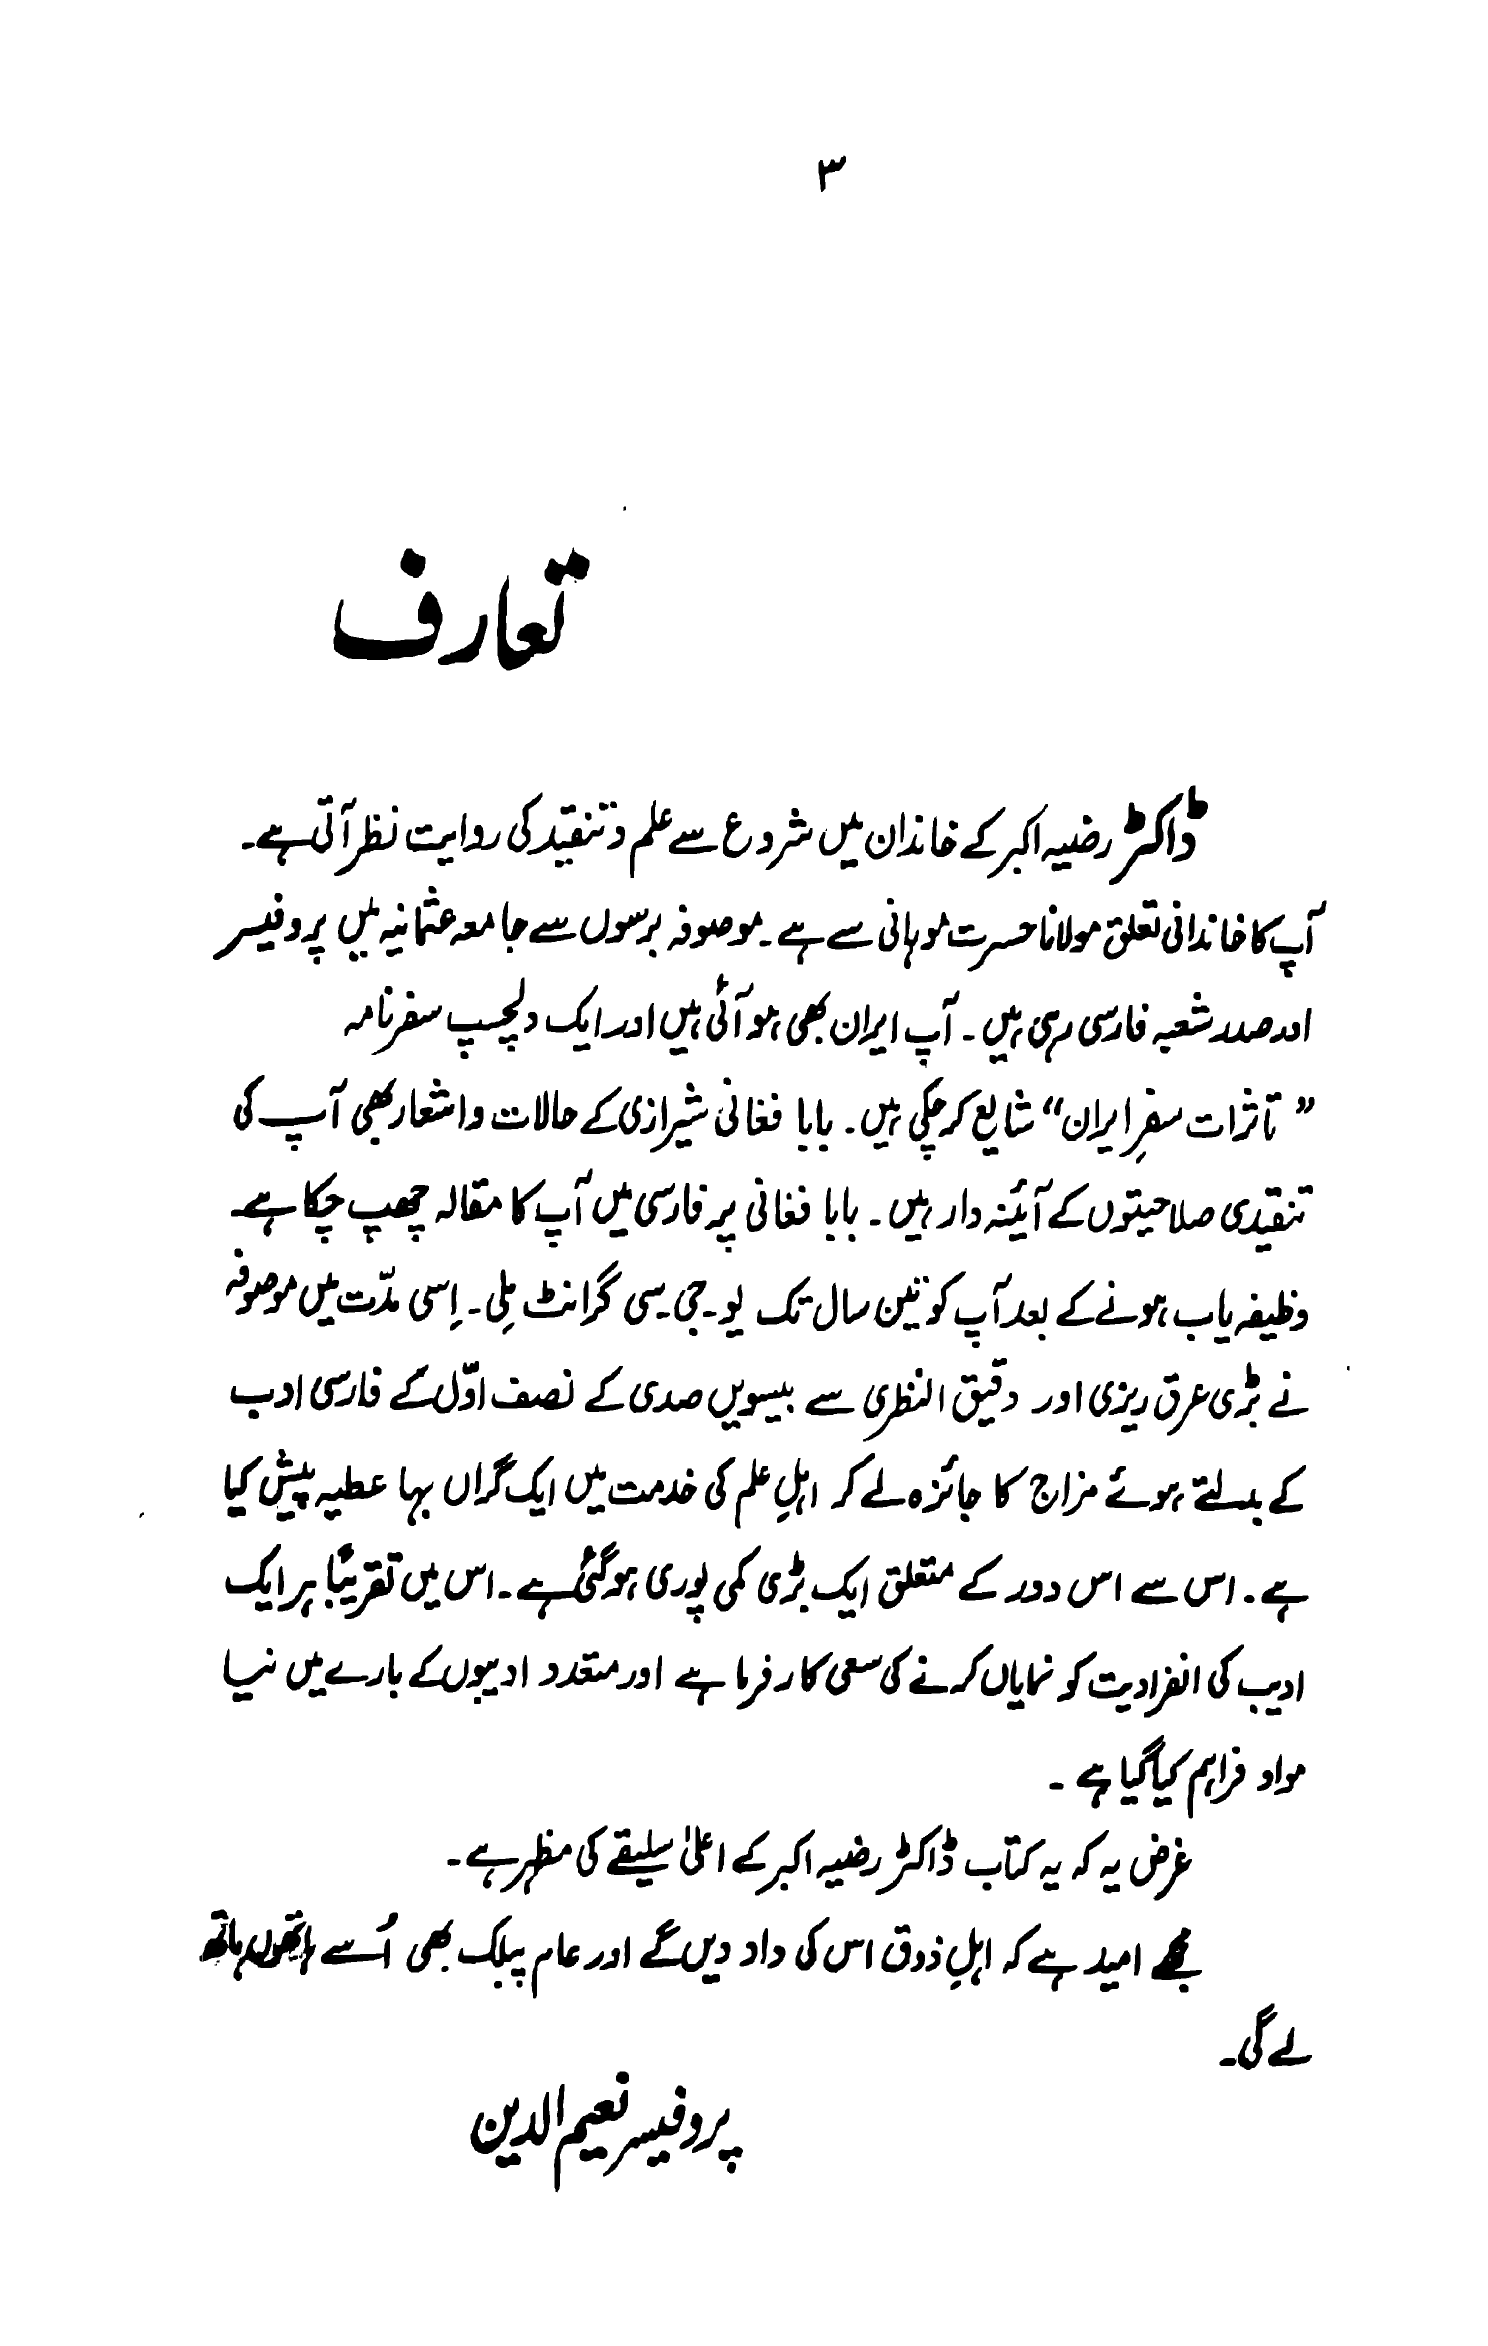 ۳
تعارف
ڈاکٹر رضیہ اکبر کے خاندان میں شروع سے علم و تنقید کی روایت نظر آتی ہے۔
آپ کا خاندانی تعلق مولانا حسرت موہانی سے ہے۔ موصوفہ برسوں سے جامعہ عثمانیہ میں پروفیسر
اور صدر شعبہ فارسی رہی ہیں۔ آپ ایران بھی ہو آئی ہیں اور ایک دلچسپ سفرنامہ
”تاثرات سفرِ ایران“ شایع کر چکی ہیں۔ بابا فغانی شیرازی کے حالات و اشعار بھی آپ کی
تنقیدی صلاحیتوں کے آئینہ دار ہیں۔ بابا فغانی پر فارسی میں آپ کا مقالہ چھپ چکا ہے۔
وظیفہ یاب ہونے کے بعد آپ کو تین سال تک یو۔جی۔سی گرانٹ مِلی۔ اِسی مدّت میں موصوفہ
نے بڑی عرق ریزی اور دقیق النظری سے بیسویں صدی کے نصف اوّل کے فارسی ادب
کے بدلتے ہوئے مزاج کا جائزہ لے کر اہلِ علم کی خدمت میں ایک گراں بہا عطیہ پیش کیا
ہے۔ اس سے اس دور کے متعلق ایک بڑی کمی پوری ہوگئی ہے۔ اس میں تقریباً ہر ایک
ادیب کی انفرادیت کو نمایاں کرنے کی سعی کارفرما ہے اور متعدد ادیبوں کے بارے میں نیا
مواد فراہم کیا گیا ہے ۔
غرض یہ کہ یہ کتاب ڈاکٹر رضیہ اکبر کے اعلیٰ سلیقے کی مظہر ہے۔
مجھے امید ہے کہ اہلِ ذوق اس کی داد دیں گے اور عام پبلک بھی اُسے ہاتھوں ہاتھ
لے گی۔
پروفیسر نعیم الدین